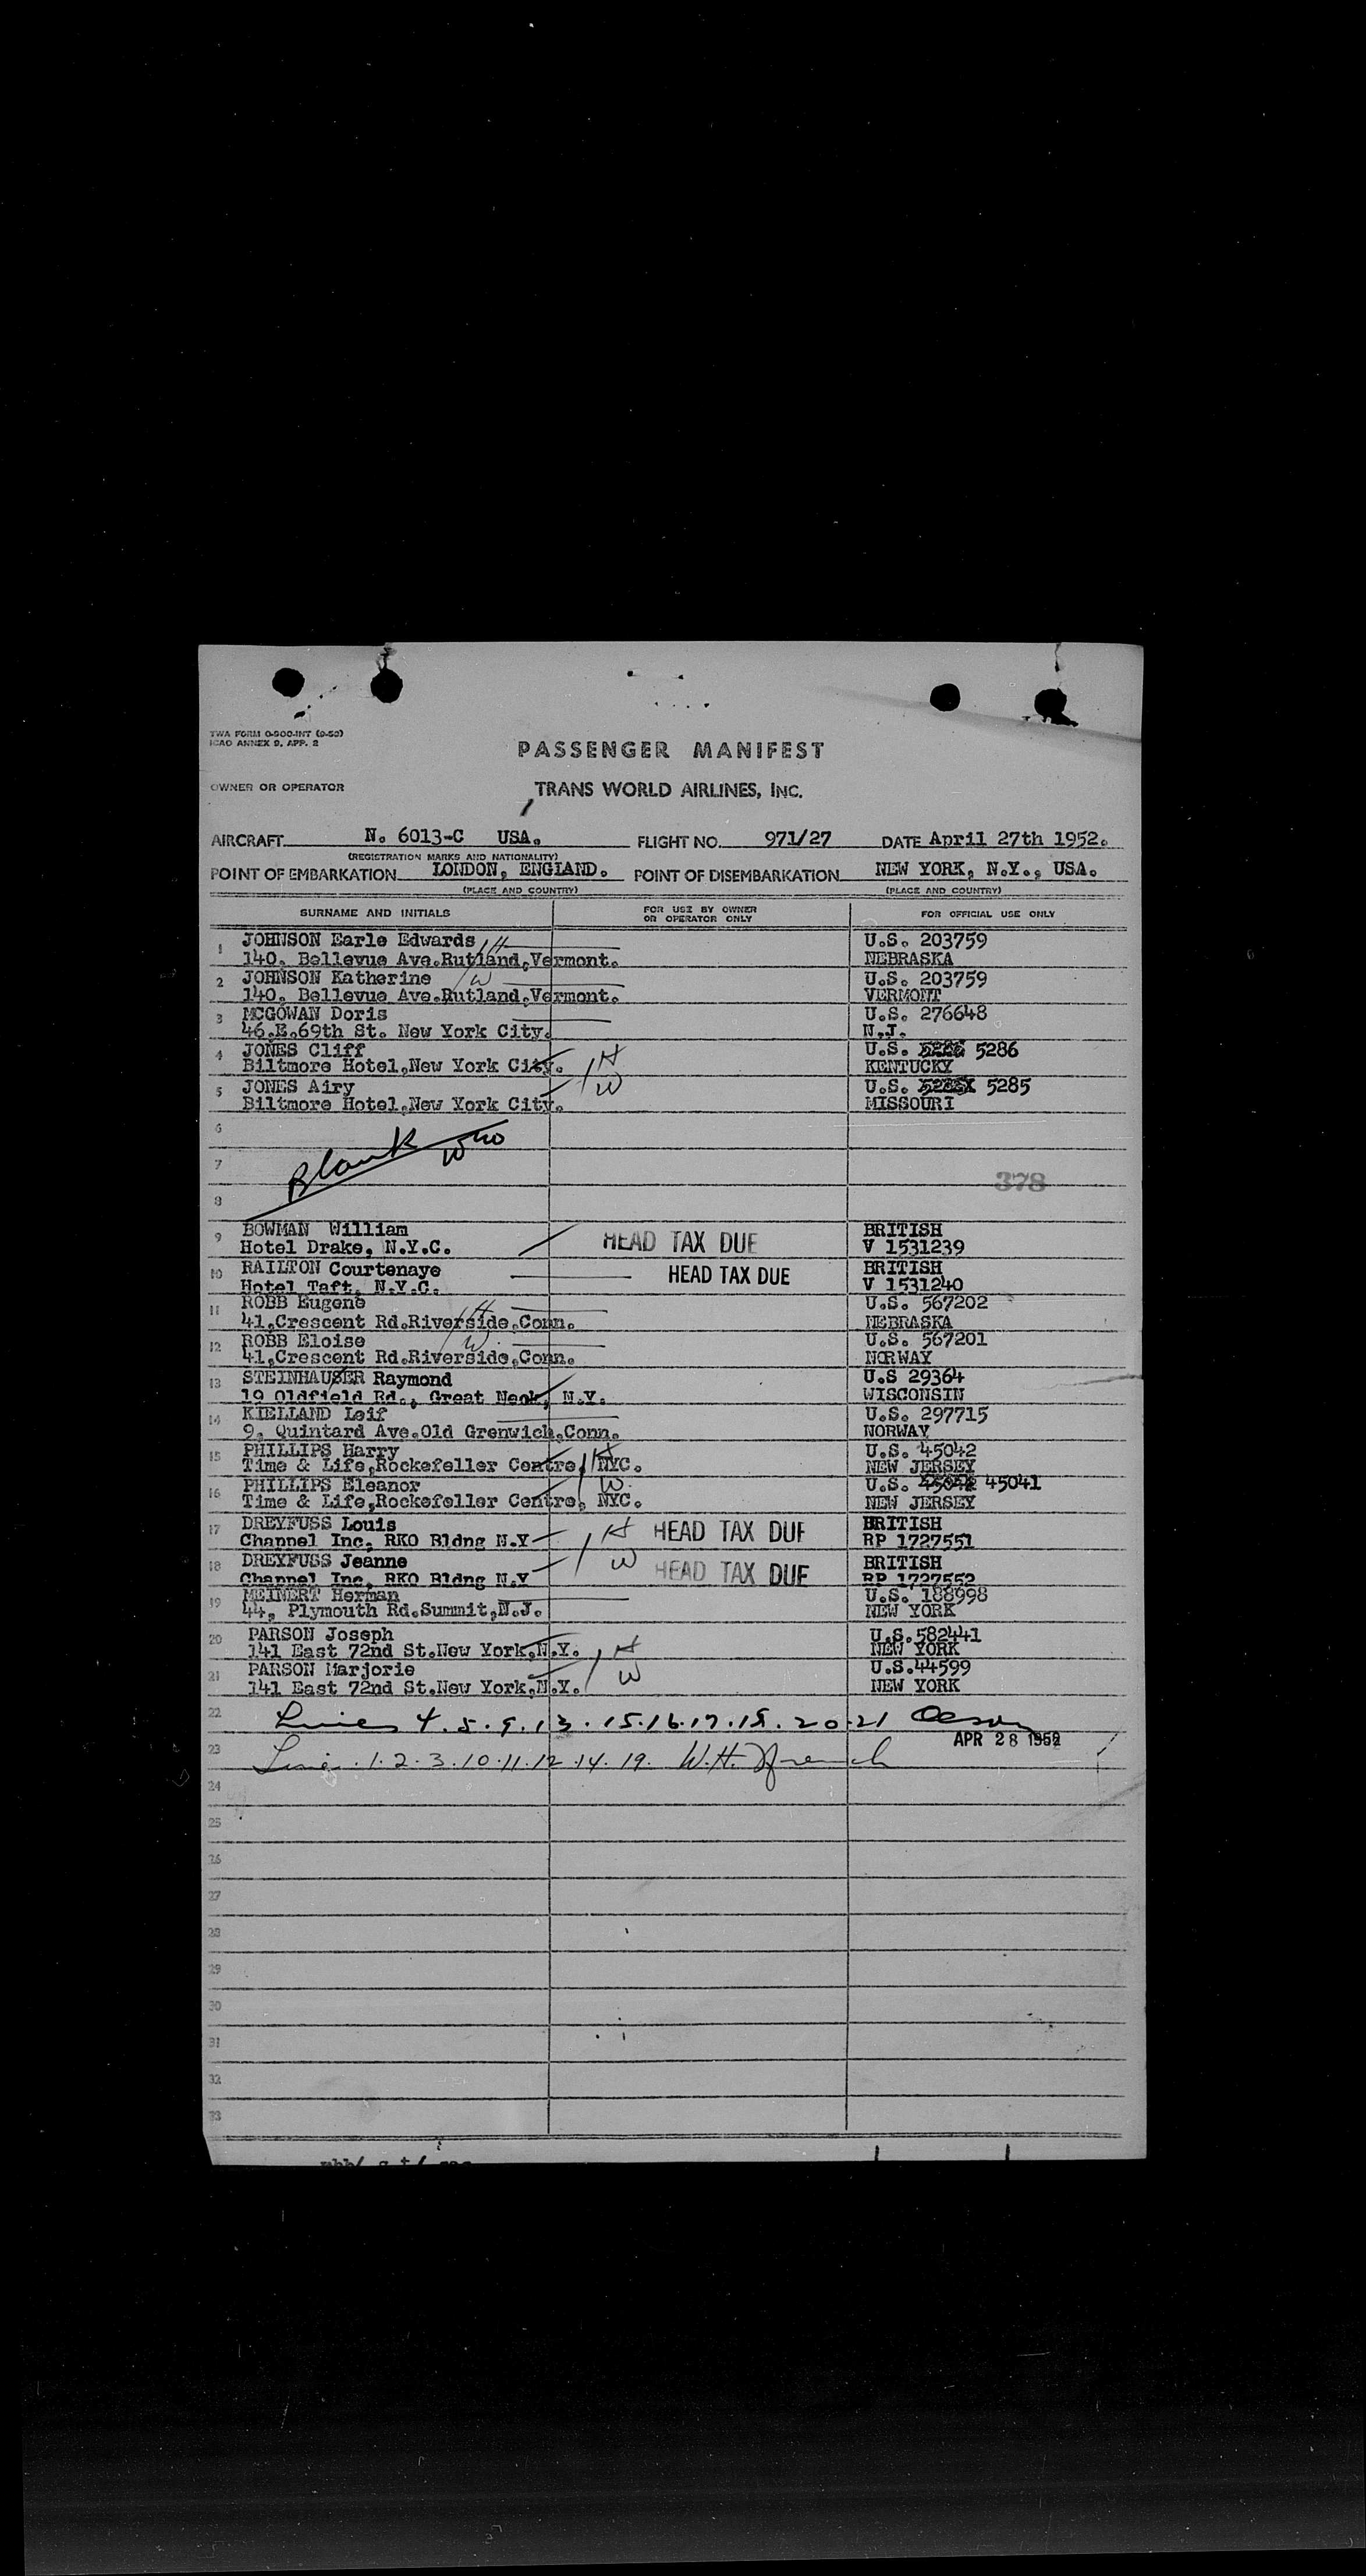 TWA FORM O-900-INT (9-50)
ICAO ANNEX 9, APP. 2
PASSENGER MANIFEST
OWNER OR OPERATOR TRANS WORLD AIRLINES, INC.
AIRCRAFT N. 6013-C USA. FLIGHT NO. 971/27 DATE April 27th 1952.
(REGISTRATION MARKS AND NATIONALITY)
POINT OF EMBARKATION LONDON, ENGLAND. POINT OF DISEMBARKATION NEW YORK, N.Y., USA.
(PLACE AND COUNTRY) (PLACE AND COUNTRY)
SURNAME AND INITIALS FOR USE BY OWNER OR OPERATOR ONLY FOR OFFICIAL USE ONLY
1 JOHNSON Earle Edwards H U.S. 203759
140, Bellevue Ave.Rutland,Vermont. NEBRASKA
2 JOHNSON Katherine W U.S. 203759
140, Bellevue Ave.Rutland,Vermont. VERMONT
3 MCGOWAN Doris U.S. 276648
46.E.69th St. New York City. N.J.
4 JONES Cliff H U.S. 5286
Biltmore Hotel,New York City. KENTUCKY
5 JONES Airy W U.S. 5285
Biltmore Hotel,New York City. MISSOURI
6
7 Blank
378
8
9 BOWMAN William HEAD TAX DUE BRITISH
Hotel Drake, N.Y.C. V 1531239
10 RAILTON Courtenaye HEAD TAX DUE BRITISH
Hotel Taft, N.Y.C. V 1531240
11 ROBB Eugene H U.S. 567202
41,Crescent Rd.Riverside,Conn. NEBRASKA
12 ROBB Eloise W U.S. 567201
41,Crescent Rd.Riverside,Conn. NORWAY
13 STEINHAUSER Raymond U.S 29364
19 Oldfield Rd., Great Neck, N.Y. WISCONSIN
14 KIELLAND Leif U.S. 297715
9, Quintard Ave.Old Grenwich,Conn. NORWAY
15 PHILLIPS Harry H U.S. 45042
Time & Life,Rockefeller Centre, NYC. NEW JERSEY
16 PHILLIPS Eleanor W U.S. 45042 45041
Time & Life,Rockefeller Centre, NYC. NEW JERSEY
17 DREYFUSS Louis H HEAD TAX DUE BRITISH
Channel Inc, RKO Bldng N.Y RP 1727551
18 DREYFUSS Jeanne W HEAD TAX DUE BRITISH
Channel Inc, RKO Bldng N.Y RP 1727552
19 MEINERT Herman U.S. 188998
44, Plymouth Rd.Summit,N.J. NEW YORK
20 PARSON Joseph H U.S.582441
141 East 72nd St.New York,N.Y. NEW YORK
21 PARSON Marjorie W U.S.44599
141 East 72nd St.New York,N.Y. NEW YORK
22 Lines 4.5.9.13.15.16.17.18.20.21
APR 28 1952
23 Line 1.2.3.10.11.12.14.19. W.H. French
24
25
26
27
28
29
30
31
32
33